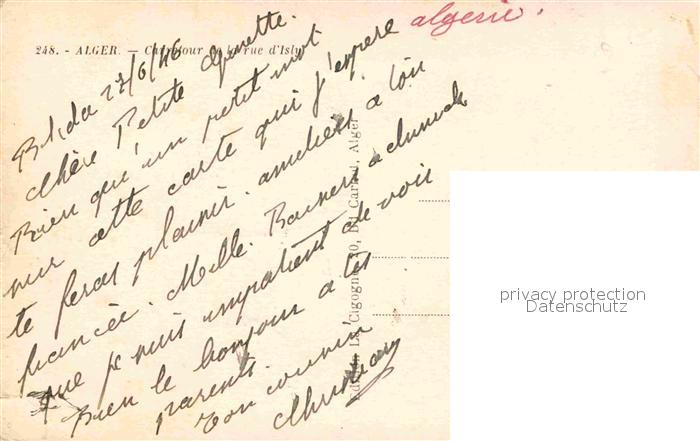 248. - ALGER. - Carrefour de la rue d'Isly
algerie.
Blida 27/6/46
Chère Petite
Bien qu'un petit mot
sur cette carte qui j'espere
te feras plaisir. amitiés a ton
fiancée. Melle.
que je suis impatient de voir
Bien le bonjour a tes
parents.
Ton cousin
Christian
Edit. La Cigogne, 10, Bd Carnot, Alger
privacy protection
Datenschutz